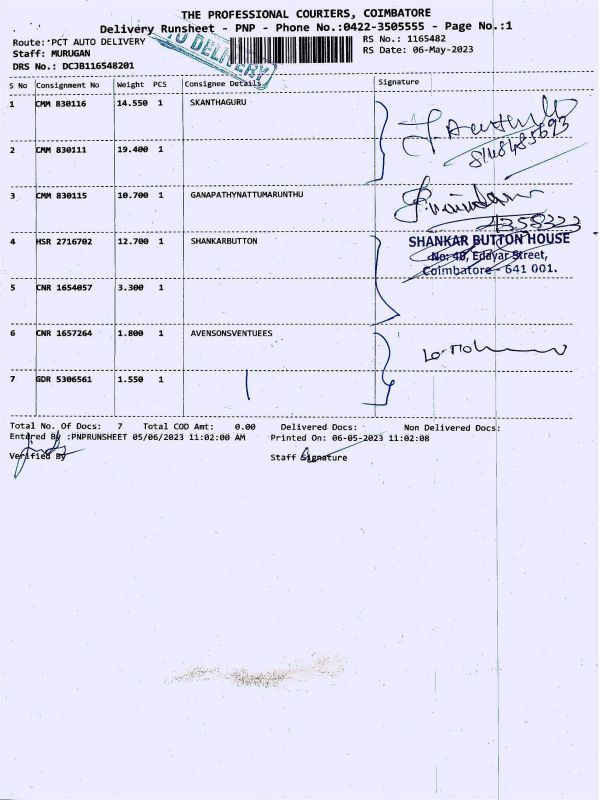 THE PROFESSIONAL COURIERS, COIMBATORE
Delivery Runsheet - PNP - Phone No.:0422-3505555 - Page No.:1
Route: PCT AUTO DELIVERY RS No.: 1165482
Staff: MURUGAN RS Date: 06-May-2023
DRS No.: DCJB116548201
TO DELIVERY
S No Consignment No Weight PCS Consignee Details Signature
1 CMM 830116 14.550 1 SKANTHAGURU
2 CMM 830111 19.400 1
3 CMM 830115 10.700 1 GANAPATHYNATTUMARUNTHU
4 HSR 2716702 12.700 1 SHANKARBUTTON
SHANKAR BUTTON HOUSE
No: 40, Edayar Street,
Coimbatore - 641 001.
5 CNR 1654057 3.300 1
6 CNR 1657264 1.800 1 AVENSONSVENTUEES
7 GDR 5306561 1.550 1
Total No. Of Docs: 7 Total COD Amt: 0.00 Delivered Docs: Non Delivered Docs:
Entered By :PNPRUNSHEET 05/06/2023 11:02:00 AM Printed On: 06-05-2023 11:02:08
Verified By Staff Signature